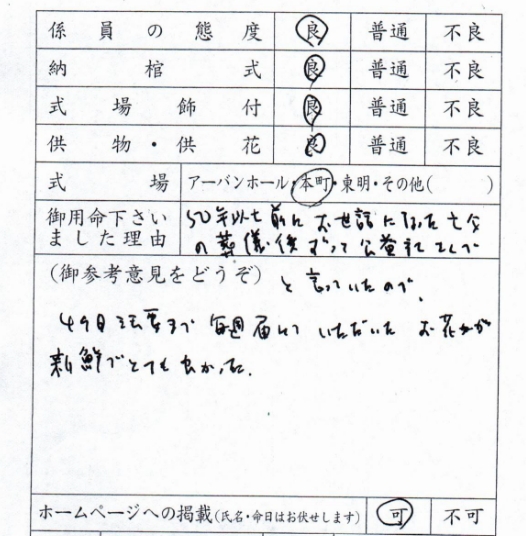 係員の態度 良 普通 不良
納棺式 良 普通 不良
式場飾付 良 普通 不良
供物・供花 良 普通 不良
式場 アーバンホール・本町・東明・その他( )
御用命下さいました理由 50年以上前にお世話になった
の葬儀後ずっと
(御参考意見をどうぞ) と言っていたので、
49日法要まで毎週届けていただいたお花が
新鮮でとても良かった。
ホームページへの掲載(氏名・命日はお伏せします) 可 不可